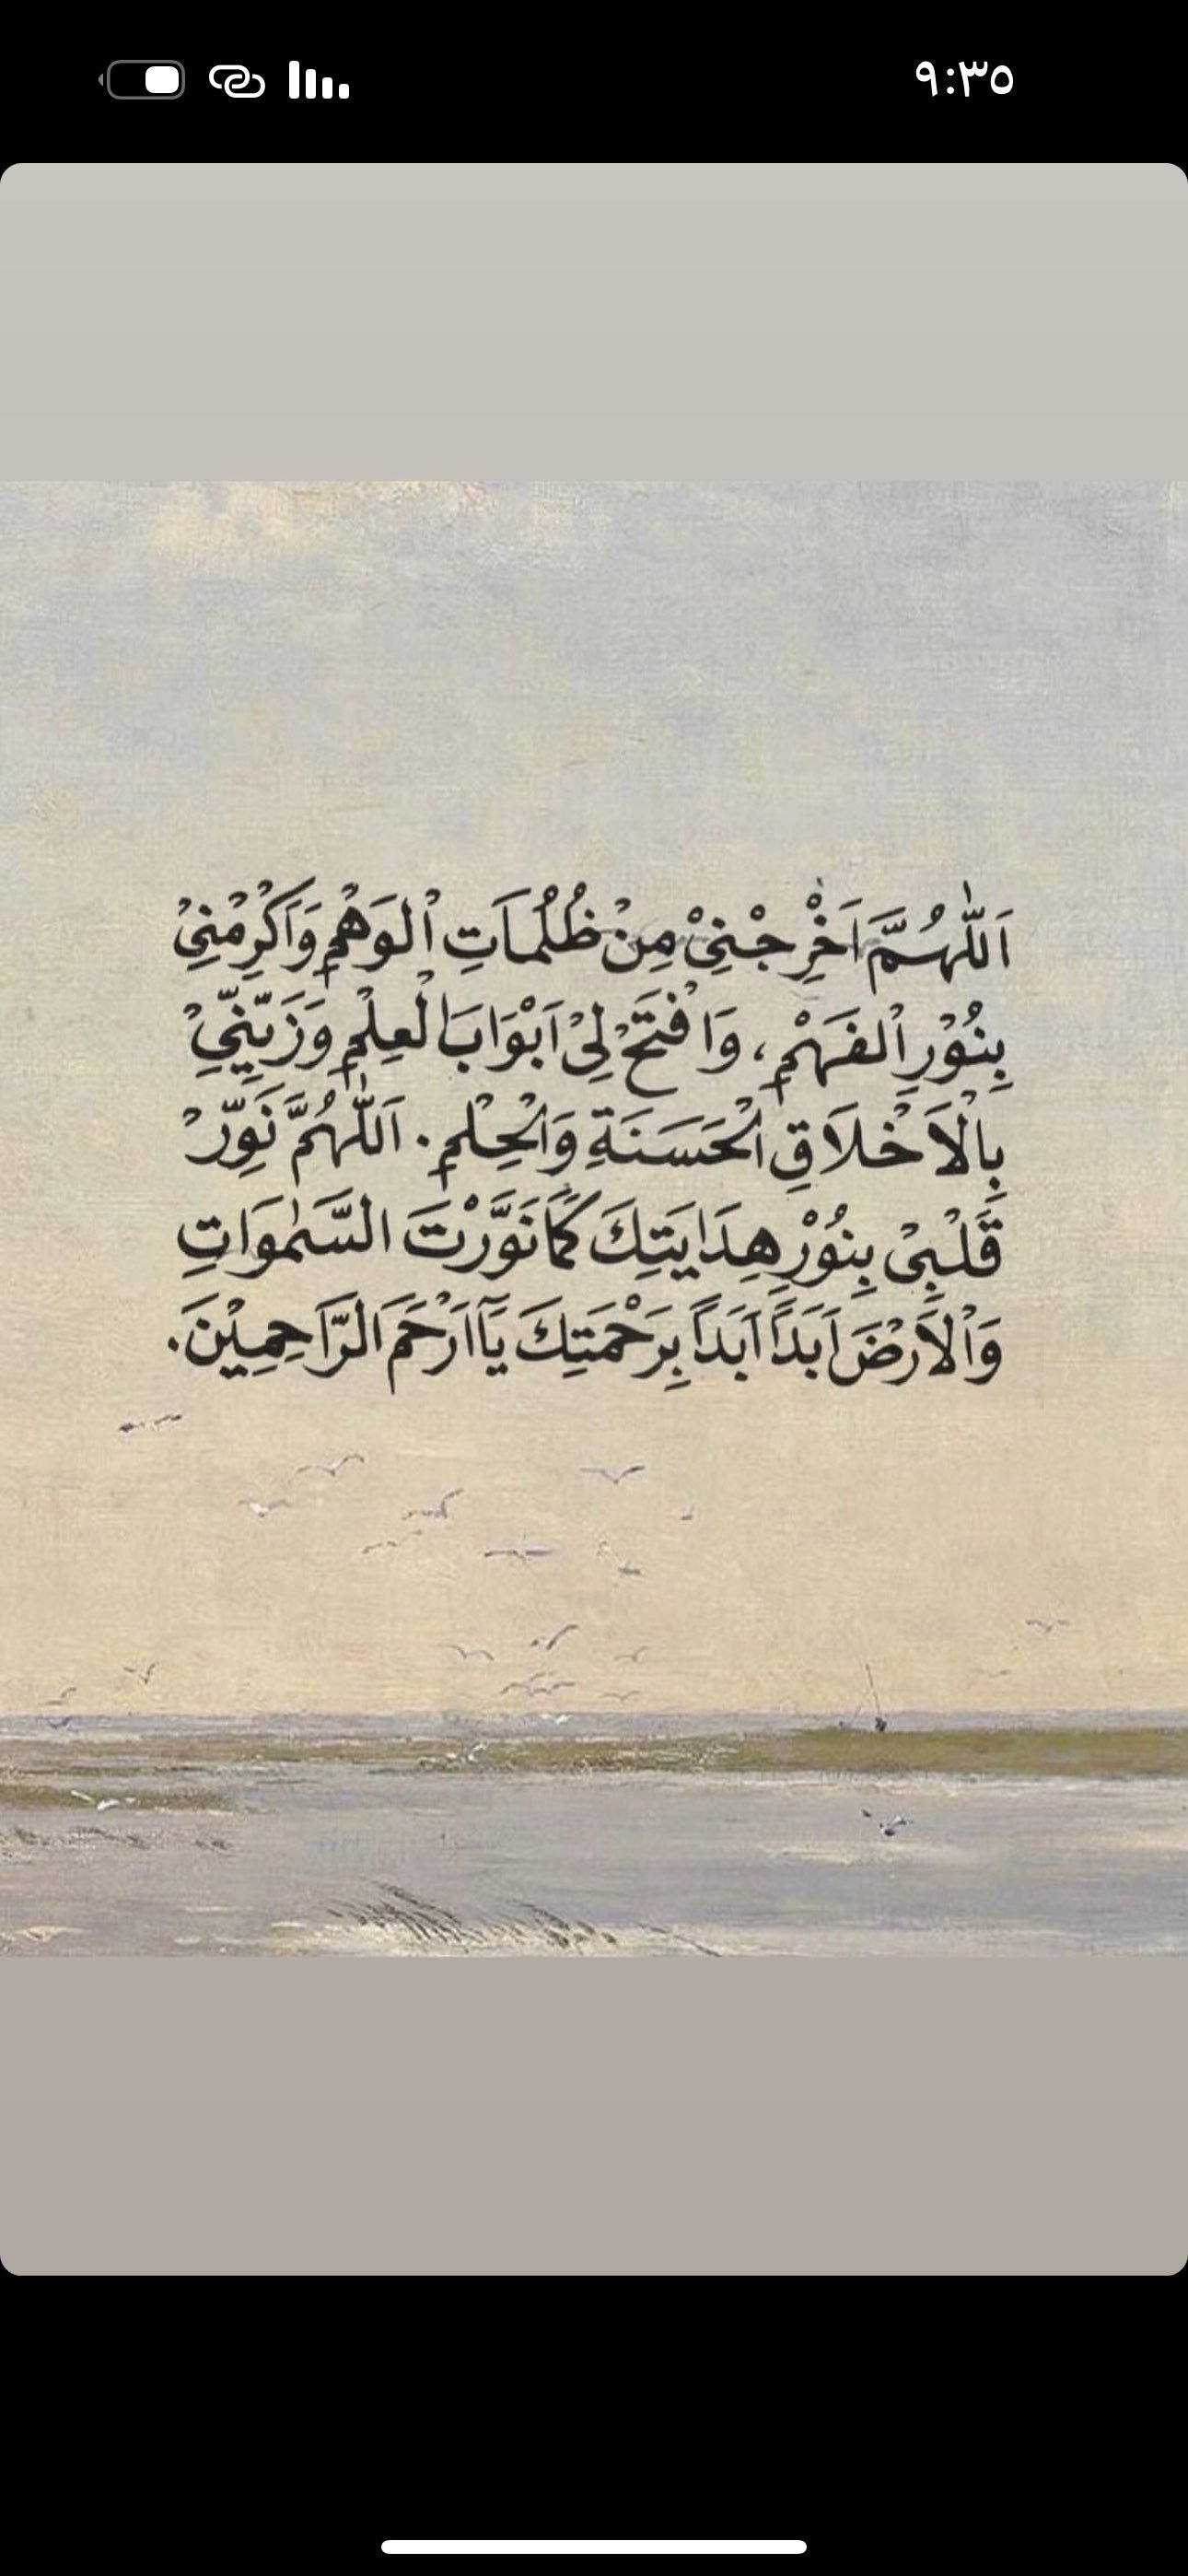 ٩:٣٥
اَللّٰهُمَّ اَخْرِجْنِيْ مِنْ ظُلُمَاتِ اْلوَهْمِ وَاَكْرِمْنِيْ
بِنُوْرِ اْلفَهْمِ، وَافْتَحْ لِيْ اَبْوَابَ الْعِلْمِ وَزَيِّنِّيْ
بِالْاَخْلَاقِ الْحَسَنَةِ وَالْحِلْمِ. اَللّٰهُمَّ نَوِّرْ
قَلْبِيْ بِنُوْرِ هِدَايَتِكَ كَمَا نَوَّرْتَ السَّمٰوَاتِ
وَالْاَرْضَ اَبَدًا اَبَدًا بِرَحْمَتِكَ يَآاَرْحَمَ الرَّاحِمِيْنَ.